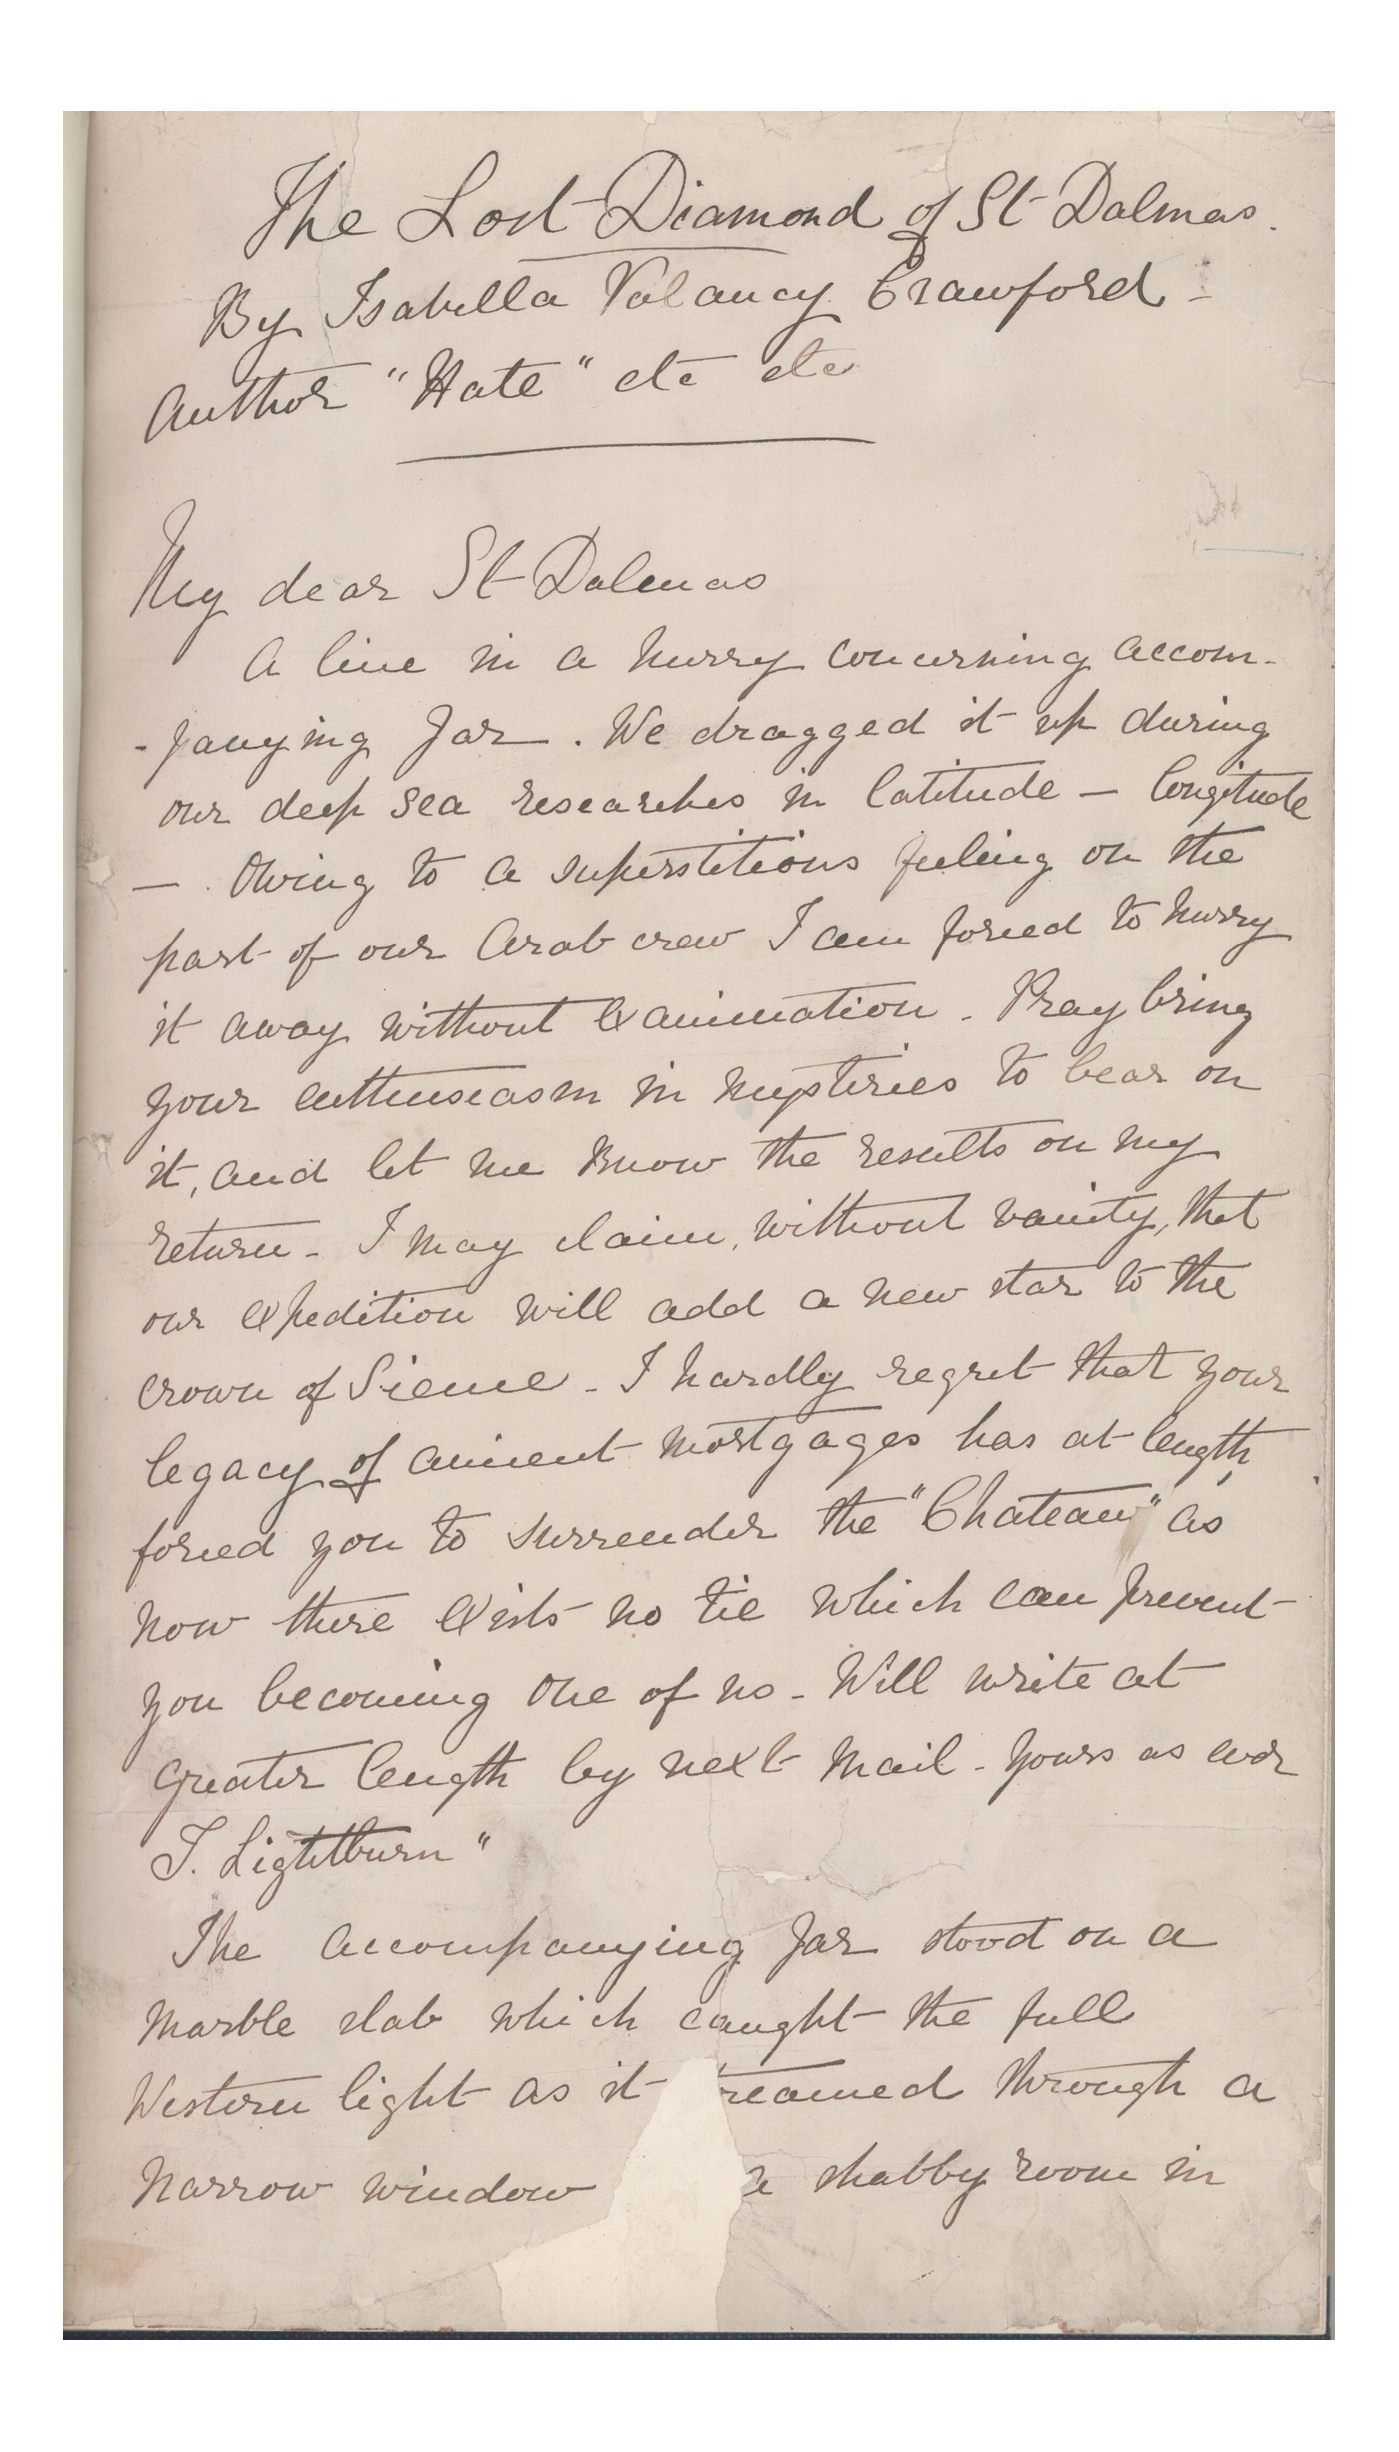 The Lost Diamond of St Dalmas.
By Isabella Valancy Crawford -
Author "Hate" etc etc
My dear St Dalmas
A line in a hurry concerning accom-
-panying Jar. We dragged it up during
our deep sea researches in latitude — longitude
—. Owing to a superstitious feeling on the
part of our Arab crew I am forced to hurry
it away without examination. Pray bring
your enthusiasm in mysteries to bear on
it, and let me know the results on my
return - I may claim, without vanity, that
our expedition will add a new star to the
crown of Sience - I hardly regret that your
legacy of ancient mortgages has at length,
forced you to surrender the "Chateau" as
now there exists no tie which can prevent
you becoming one of us - Will write at
greater length by next mail - yours as ever
J. Lightburn"
The accompanying Jar stood on a
Marble slab which caught the full
Western light as it reamed through a
Narrow window shabby room in